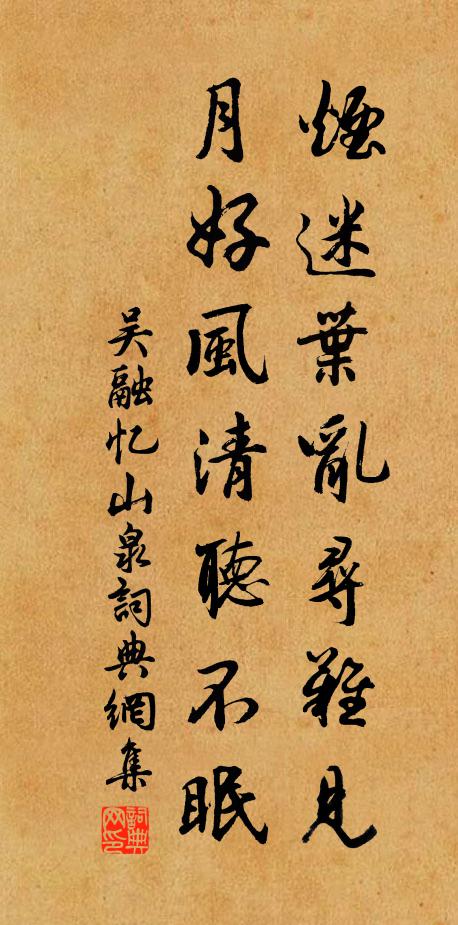 煙迷葉亂尋難見
月好風清聽不眠
吴融忆山泉詞典網集
詞典网印